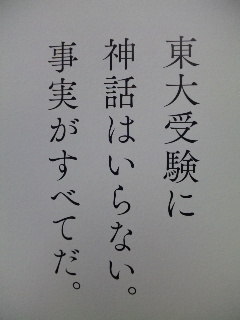 東大受験に
神話はいらない。
事実がすべてだ。